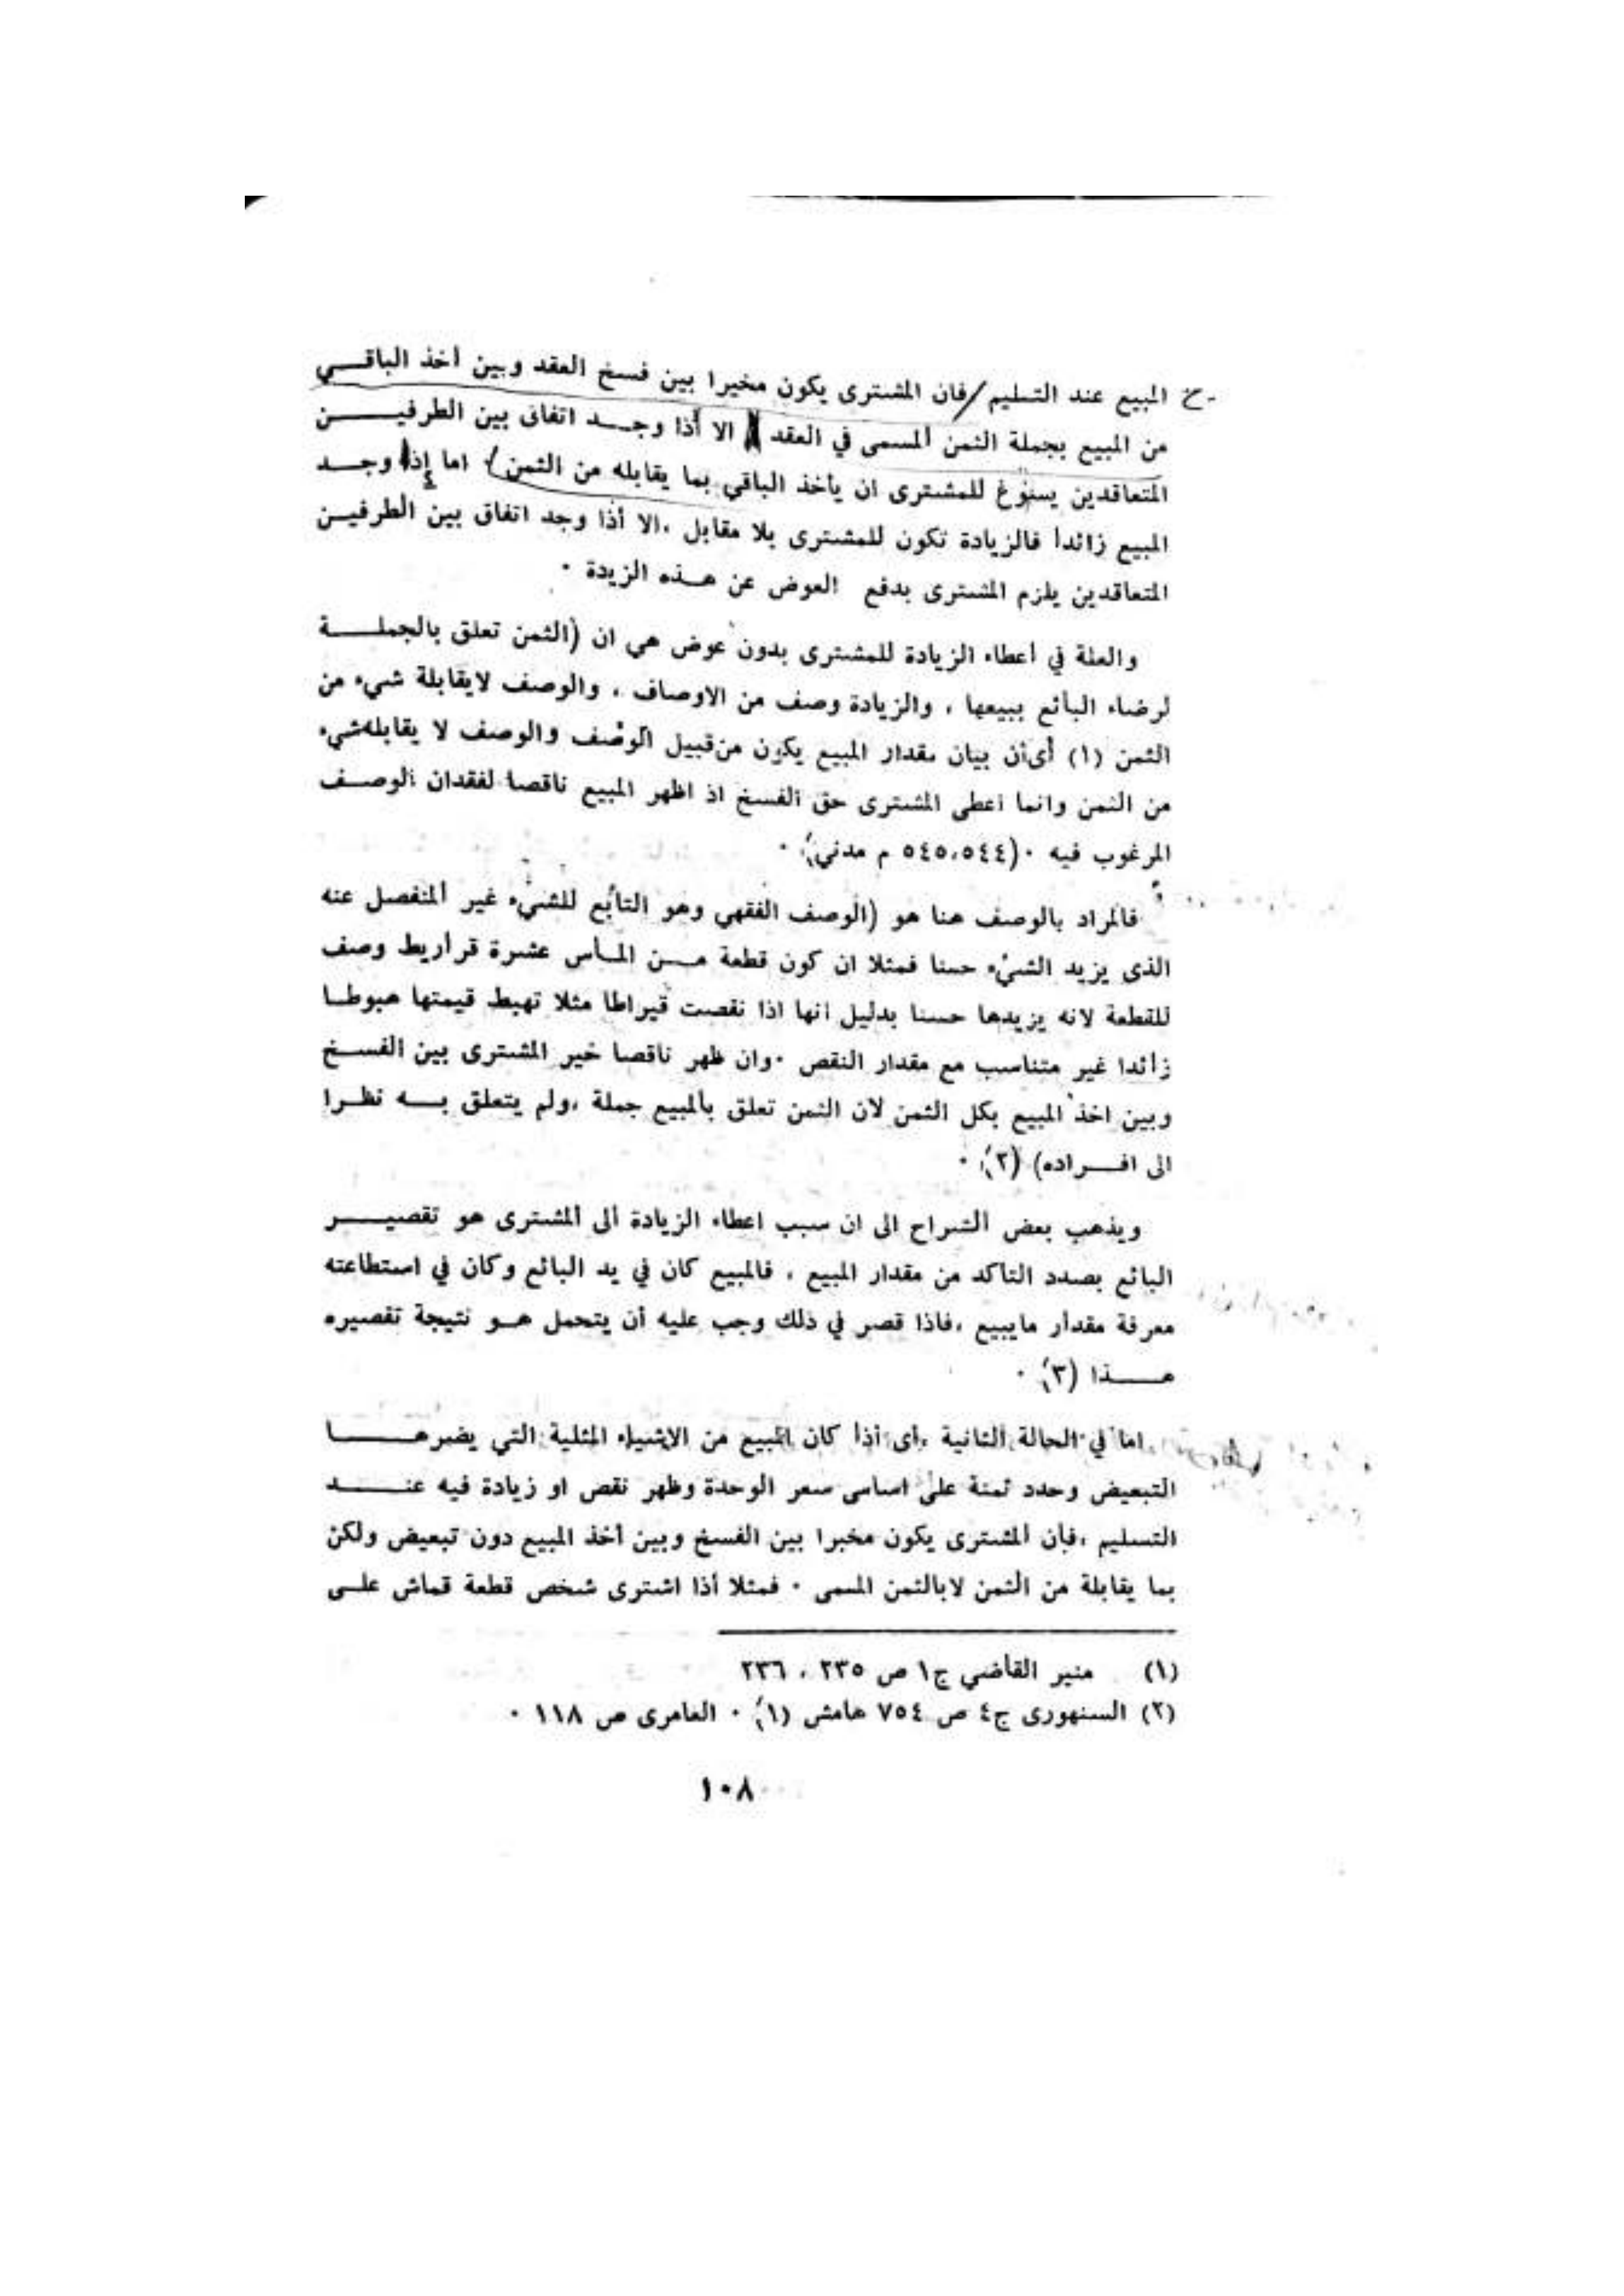 المبيع عند التسليم / فان المشترى يكون مخيرا بين فسخ العقد وبين أخذ الباقي
من المبيع بجملة الثمن المسمى في العقد الا أذا وجد اتفاق بين الطرفين
المتعاقدين يسوغ للمشترى ان يأخذ الباقي بما يقابله من الثمن) اما إذا وجد
المبيع زائدا فالزيادة تكون للمشترى بلا مقابل ،الا أذا وجد اتفاق بين الطرفين
المتعاقدين يلزم المشترى بدفع العوض عن هذه الزيدة ٠
والعلة في أعطاء الزيادة للمشترى بدون عوض هي ان (الثمن تعلق بالجملة
لرضاء البائع ببيعها ، والزيادة وصف من الاوصاف ، والوصف لايقابلة شيء من
الثمن (١) أى أن بيان مقدار المبيع يكون من قبيل الوصف والوصف لا يقابله شيء
من الثمن وانما اعطى المشترى حق الفسخ اذ اظهر المبيع ناقصا لفقدان الوصف
المرغوب فيه ٠(٥٤٥،٥٤٤ م مدني) ٠
فالمراد بالوصف هنا هو (الوصف الفقهي وهو التابع للشيء غير المنفصل عنه
الذى يزيد الشيء حسنا فمثلا ان كون قطعة من الماس عشرة قراريط وصف
للقطعة لانه يزيدها حسنا بدليل انها اذا نقصت قيراطا مثلا تهبط قيمتها هبوطا
زائدا غير متناسب مع مقدار النقص ٠وان ظهر ناقصا خير المشترى بين الفسخ
وبين اخذ المبيع بكل الثمن لان الثمن تعلق بالمبيع جملة ،ولم يتعلق به نظرا
الى افراده) (٢) ٠
ويذهب بعض الشراح الى ان سبب اعطاء الزيادة ألى المشترى هو تقصير
البائع بصدد التاكد من مقدار المبيع ، فالمبيع كان في يد البائع وكان في استطاعته
معرفة مقدار مايبيع ،فاذا قصر في ذلك وجب عليه أن يتحمل هو نتيجة تقصيره
هذا (٣) ٠
اما في الحالة الثانية ،اى أذا كان المبيع من الاشياء المثلية التي يضرها
التبعيض وحدد ثمنة على اساس سعر الوحدة وظهر نقص او زيادة فيه عند
التسليم ،فأن المشترى يكون مخبرا بين الفسخ وبين أخذ المبيع دون تبعيض ولكن
بما يقابلة من الثمن لابالثمن المسمى ٠ فمثلا أذا اشترى شخص قطعة قماش على
(١) منير القاضي ج١ ص ٢٣٥ ، ٢٣٦
(٢) السنهورى ج٤ ص ٧٥٤ هامش (١) ٠ العامرى ص ١١٨ ٠
١٠٨